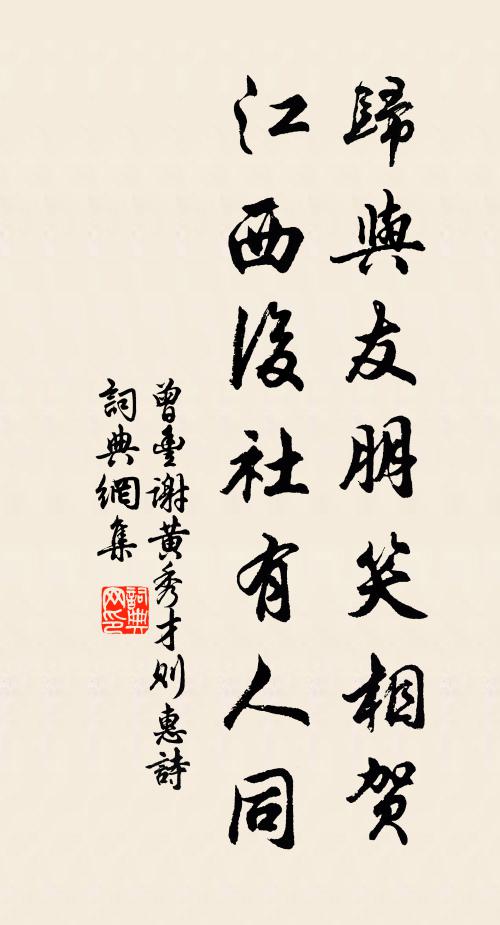 歸與友朋笑相賀
江西後社有人同
曾豐謝黃秀才則惠詩
詞典網集
詞典网印